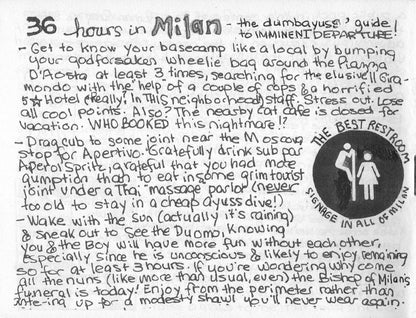 36 hours in Milan - the dumbayuss' guide
to IMMINENT DEPARTURE!
- Get to know your basecamp like a local by bumping
your godforsaken wheelie bag around the Piazza
D'Aosta at least 3 times, searching for the elusive Il Gira-
mondo with the help of a couple of cops & a horrified
5☆ Hotel (Really! In THIS neighborhood) staff. Stress out. Lose
all cool points. Also? The nearby cat cafe is closed for
vacation. WHO BOOKED this nightmare!?
- Drag cub to some joint near the Moscova
stop for Apertivo. Gratefully drink sub par
Aperol Spritz, grateful that you had more
gumption than to eat in some grim tourist
joint under a Thai "massage parlor" (never
too old to stay in a cheap ayuss dive!)
- Wake with the sun (actually it's raining)
& sneak out to see the Duomo, knowing
you & the Boy will have more fun without each other,
especially since he is unconscious & likely to enjoy remaining
so for at least 3 hours. If you're wondering why come
all the nuns (like more than usual, even) the Bishop of Milan's
funeral is today! Enjoy from the perimeter rather than
ante-ing up for a modesty shawl you'll never wear again.
THE BEST RESTROOM
SIGNAGE IN ALL OF MILAN